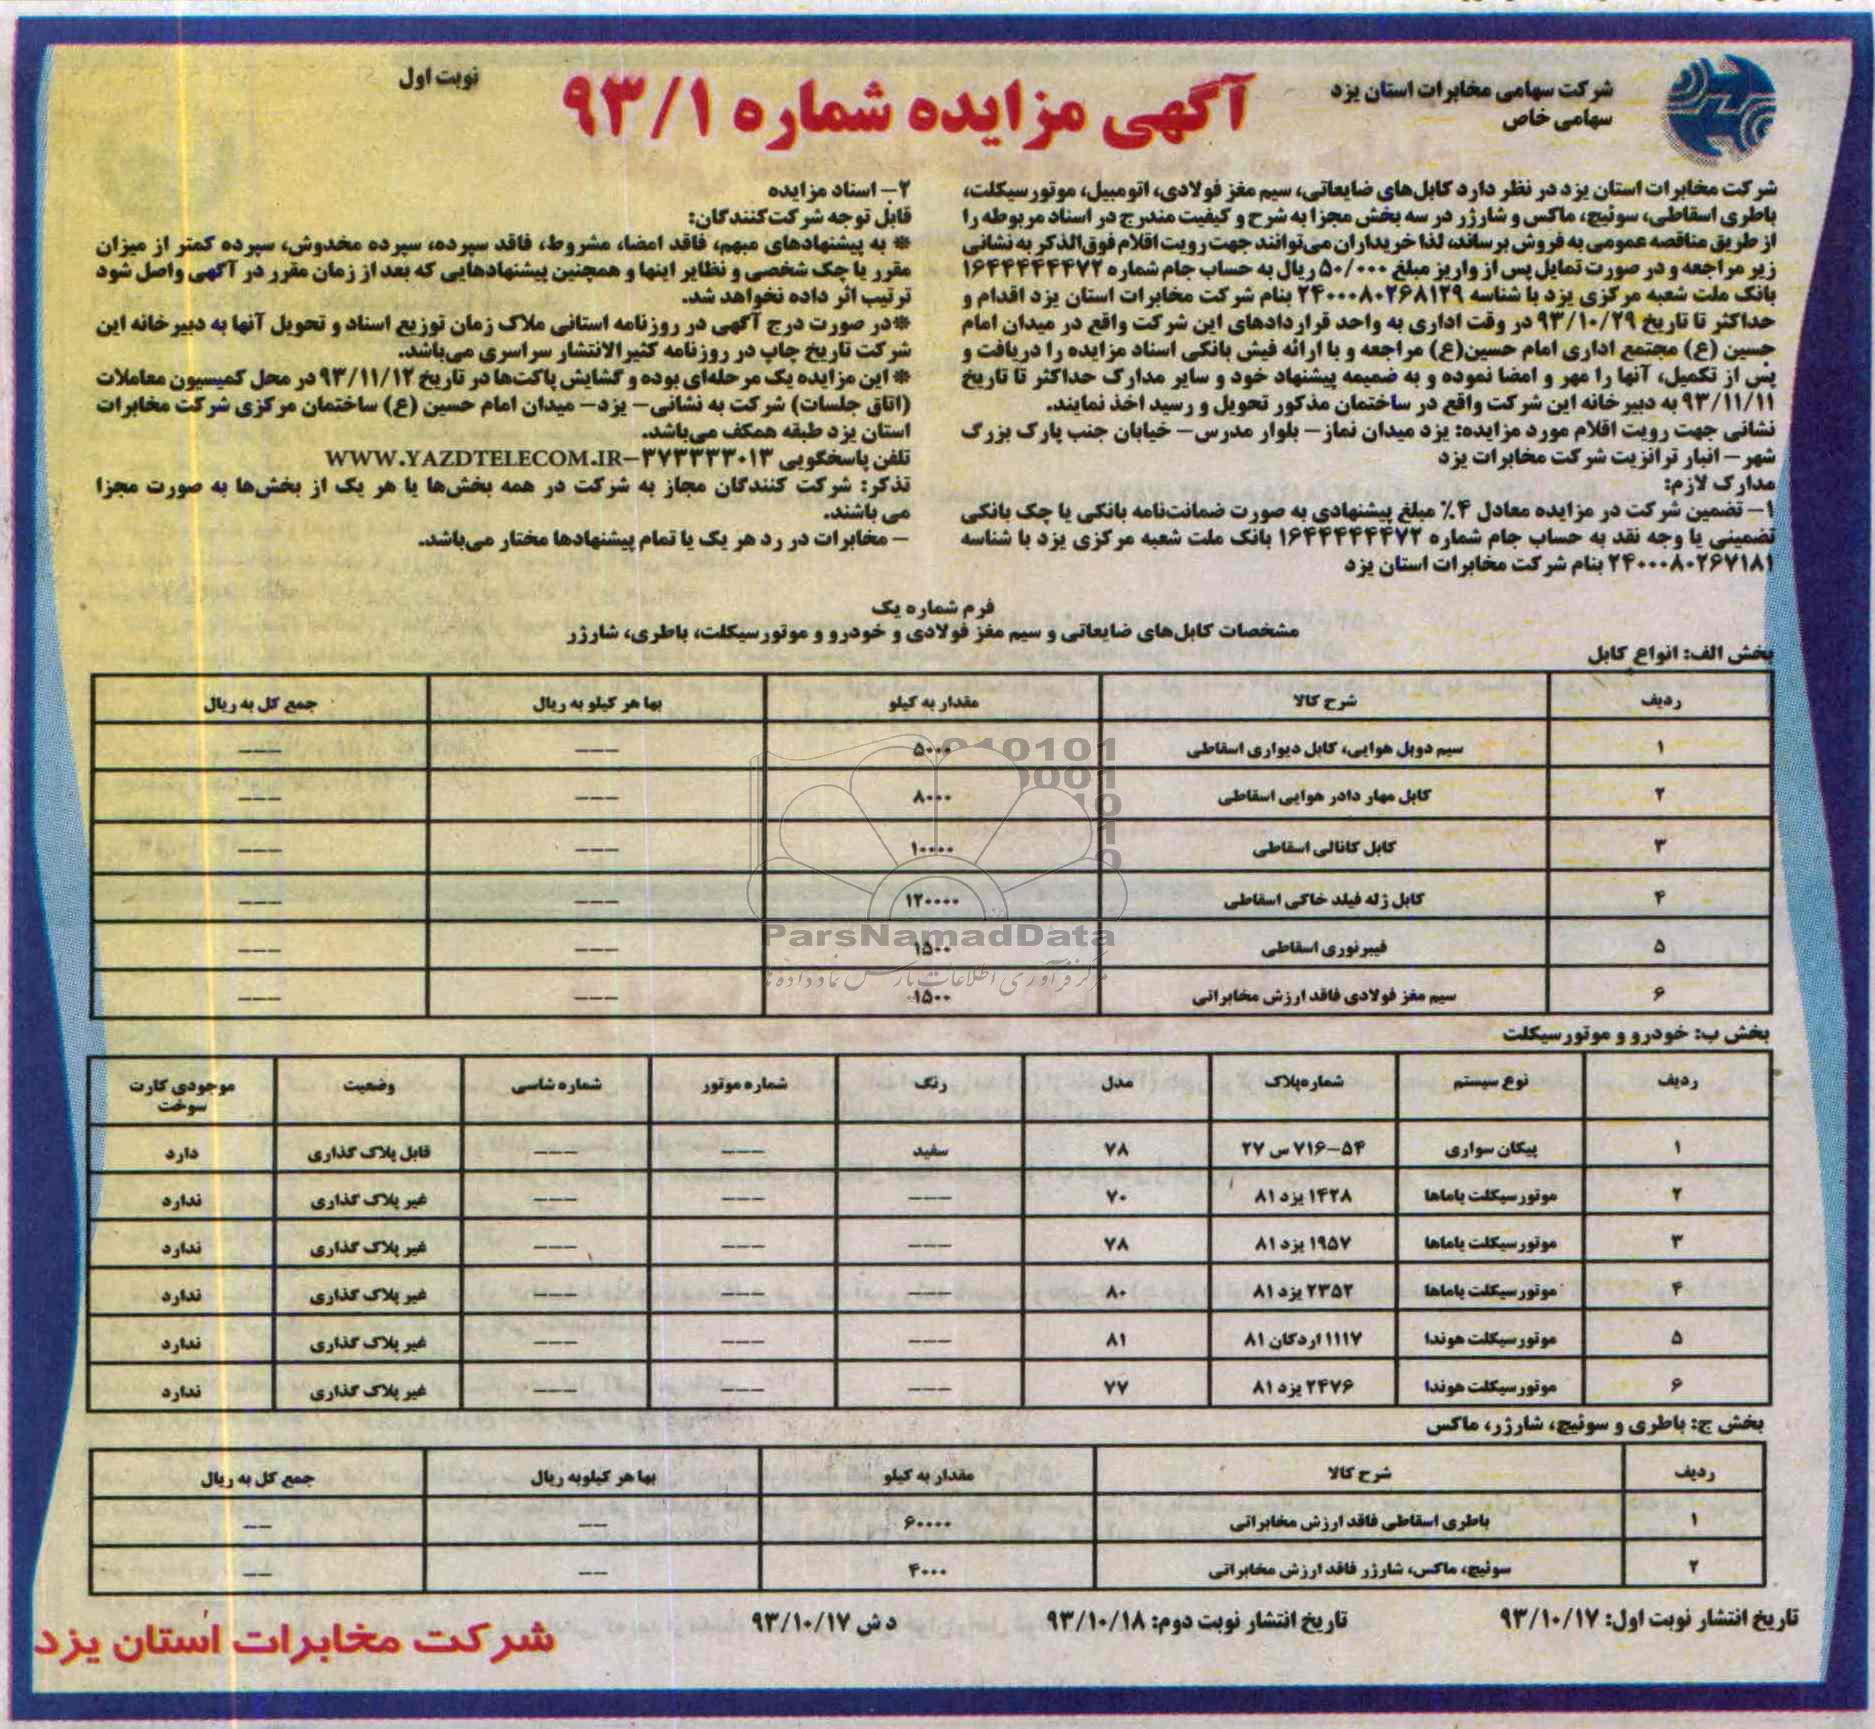 شرکت سهامی مخابرات استان یزد
سهامی خاص
آگهی مزایده شماره ۹۳/۱
نوبت اول
شرکت مخابرات استان یزد در نظر دارد کابل‌های ضایعاتی، سیم مغز فولادی، اتومبیل، موتورسیکلت،
باطری اسقاطی، سوئیچ، ماکس و شارژر در سه بخش مجزا به شرح و کیفیت مندرج در اسناد مربوطه را
از طریق مناقصه عمومی به فروش برساند، لذا خریداران می‌توانند جهت رویت اقلام فوق‌الذکر به نشانی
زیر مراجعه و در صورت تمایل پس از واریز مبلغ ۵۰/۰۰۰ ریال به حساب جام شماره ۱۶۴۴۴۴۴۴۷۲
بانک ملت شعبه مرکزی یزد با شناسه ۲۴۰۰۰۸۰۲۶۸۱۲۹ بنام شرکت مخابرات استان یزد اقدام و
حداکثر تا تاریخ ۹۳/۱۰/۲۹ در وقت اداری به واحد قراردادهای این شرکت واقع در میدان امام
حسین (ع) مجتمع اداری امام حسین(ع) مراجعه و با ارائه فیش بانکی اسناد مزایده را دریافت و
پس از تکمیل، آنها را مهر و امضا نموده و به ضمیمه پیشنهاد خود و سایر مدارک حداکثر تا تاریخ
۹۳/۱۱/۱۱ به دبیرخانه این شرکت واقع در ساختمان مذکور تحویل و رسید اخذ نمایند.
نشانی جهت رویت اقلام مورد مزایده: یزد میدان نماز– بلوار مدرس– خیابان جنب پارک بزرگ
شهر – انبار ترانزیت شرکت مخابرات یزد
مدارک لازم:
۱– تضمین شرکت در مزایده معادل ۴٪ مبلغ پیشنهادی به صورت ضمانت‌نامه بانکی یا چک بانکی
تضمینی یا وجه نقد به حساب جام شماره ۱۶۴۴۴۴۴۴۷۲ بانک ملت شعبه مرکزی یزد با شناسه
۲۴۰۰۰۸۰۲۶۷۱۸۱ بنام شرکت مخابرات استان یزد
۲– اسناد مزایده
قابل توجه شرکت‌کنندگان:
* به پیشنهادهای مبهم، فاقد امضا، مشروط، فاقد سپرده، سپرده مخدوش، سپرده کمتر از میزان
مقرر یا چک شخصی و نظایر اینها و همچنین پیشنهادهایی که بعد از زمان مقرر در آگهی واصل شود
ترتیب اثر داده نخواهد شد.
*در صورت درج آگهی در روزنامه استانی ملاک زمان توزیع اسناد و تحویل آنها به دبیرخانه این
شرکت تاریخ چاپ در روزنامه کثیرالانتشار سراسری می‌باشد.
* این مزایده یک مرحله‌ای بوده و گشایش پاکت‌ها در تاریخ ۹۳/۱۱/۱۲ در محل کمیسیون معاملات
(اتاق جلسات) شرکت به نشانی– یزد– میدان امام حسین (ع) ساختمان مرکزی شرکت مخابرات
استان یزد طبقه همکف می‌باشد.
تلفن پاسخگویی ۳۷۳۳۳۳۰۱۳–WWW.YAZDTELECOM.IR
تذکر: شرکت کنندگان مجاز به شرکت در همه بخش‌ها یا هر یک از بخش‌ها به صورت مجزا
می باشند.
– مخابرات در رد هر یک یا تمام پیشنهادها مختار می‌باشد.
فرم شماره یک
مشخصات کابل‌های ضایعاتی و سیم مغز فولادی و خودرو و موتورسیکلت، باطری، شارژر
بخش الف: انواع کابل
ردیف شرح کالا مقدار به کیلو بها هر کیلو به ریال جمع کل به ریال
۱ سیم دوبل هوایی، کابل دیواری اسقاطی ۵۰۰۰ ––– –––
۲ کابل مهار دادر هوایی اسقاطی ۸۰۰۰ ––– –––
۳ کابل کانالی اسقاطی ۱۰۰۰۰ ––– –––
۴ کابل ژله فیلد خاکی اسقاطی ۱۲۰۰۰۰ ––– –––
۵ فیبرنوری اسقاطی ۱۵۰۰ ––– –––
۶ سیم مغز فولادی فاقد ارزش مخابراتی ۱۵۰۰ ––– –––
ParsNamadData
مرکز فرآوری اطلاعات پارس نماد داده ها
بخش ب: خودرو و موتورسیکلت
ردیف نوع سیستم شماره‌پلاک مدل رنگ شماره موتور شماره شاسی وضعیت موجودی کارت سوخت
۱ پیکان سواری ۵۴–۷۱۶ س ۲۷ ۷۸ سفید ––– ––– قابل پلاک گذاری دارد
۲ موتورسیکلت یاماها ۱۴۲۸ یزد ۸۱ ۷۰ ––– ––– ––– غیر پلاک گذاری ندارد
۳ موتورسیکلت یاماها ۱۹۵۷ یزد ۸۱ ۷۸ ––– ––– ––– غیر پلاک گذاری ندارد
۴ موتورسیکلت یاماها ۲۳۵۲ یزد ۸۱ ۸۰ ––– ––– ––– غیر پلاک گذاری ندارد
۵ موتورسیکلت هوندا ۱۱۱۷ اردکان ۸۱ ۸۱ ––– ––– ––– غیر پلاک گذاری ندارد
۶ موتورسیکلت هوندا ۲۴۷۶ یزد ۸۱ ۷۷ ––– ––– ––– غیر پلاک گذاری ندارد
بخش ج: باطری و سوئیچ، شارژر، ماکس
ردیف شرح کالا مقدار به کیلو بها هر کیلوبه ریال جمع کل به ریال
۱ باطری اسقاطی فاقد ارزش مخابراتی ۶۰۰۰۰ –– ––
۲ سوئیچ، ماکس، شارژر فاقد ارزش مخابراتی ۴۰۰۰ –– ––
تاریخ انتشار نوبت اول: ۹۳/۱۰/۱۷ تاریخ انتشار نوبت دوم: ۹۳/۱۰/۱۸ د ش ۹۳/۱۰/۱۷
شرکت مخابرات استان یزد